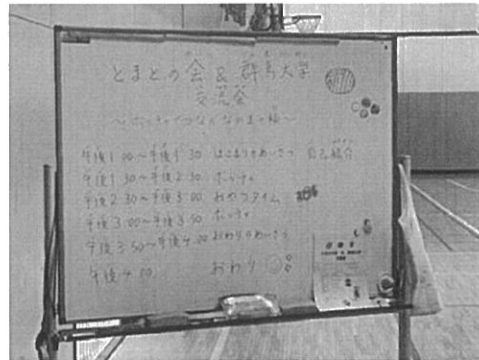 とまとの会&群馬大学
交流会
〜ボッチャでつなぐなかまの輪〜
午後1:00〜午後1:30 はじまりのあいさつ 自己紹介
午後1:30〜午後2:30 ボッチャ
午後2:30〜午後3:00 おやつタイム
午後3:00〜午後3:50 ボッチャ
午後3:50〜午後4:00 おわりのあいさつ
午後4:00 おわり